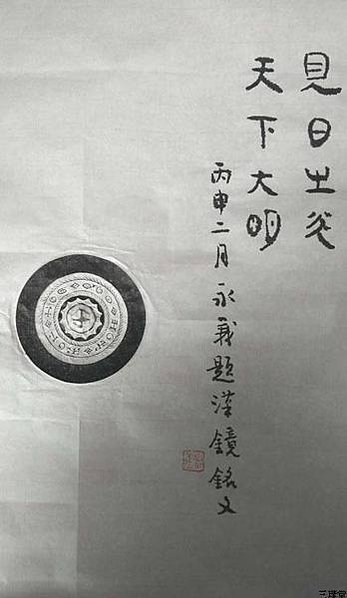 見日之光
天下大明
丙申二月永義題漢鏡銘文